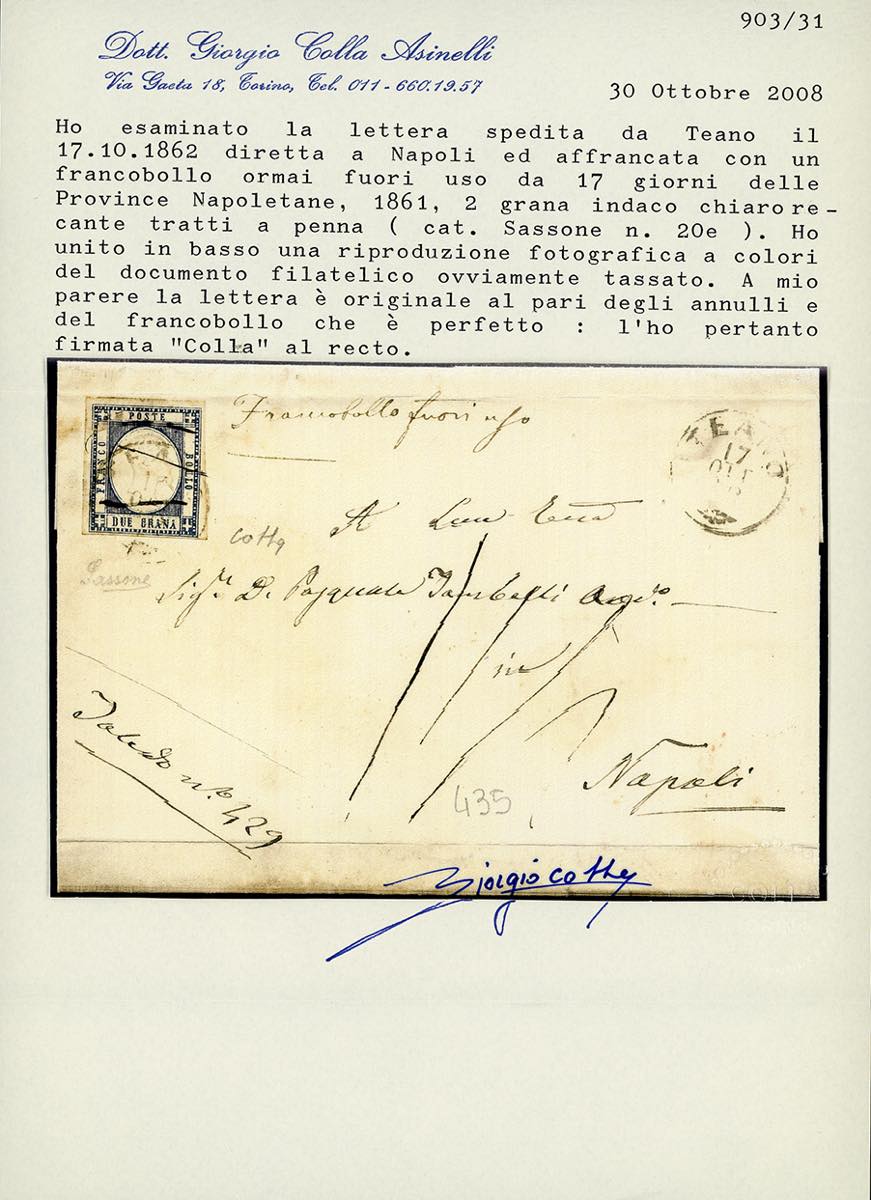 903/31
Dott. Giorgio Colla Asinelli
Via Gaeta 18, Torino, Tel. 011 - 660.19.57
30 Ottobre 2008
Ho esaminato la lettera spedita da Teano il
17.10.1862 diretta a Napoli ed affrancata con un
francobollo ormai fuori uso da 17 giorni delle
Province Napoletane, 1861, 2 grana indaco chiaro re-
cante tratti a penna ( cat. Sassone n. 20e ). Ho
unito in basso una riproduzione fotografica a colori
del documento filatelico ovviamente tassato. A mio
parere la lettera è originale al pari degli annulli e
del francobollo che è perfetto : l'ho pertanto
firmata "Colla" al recto.
POSTE
FRANCO
BOLLO
DUE GRANA
Francobollo fuori uso
TEANO
17
OTT
Colla
Sassone
A
Sig.r D. Pasquale
in
Napoli
Toledo n.o 429
435
Giorgio Colla